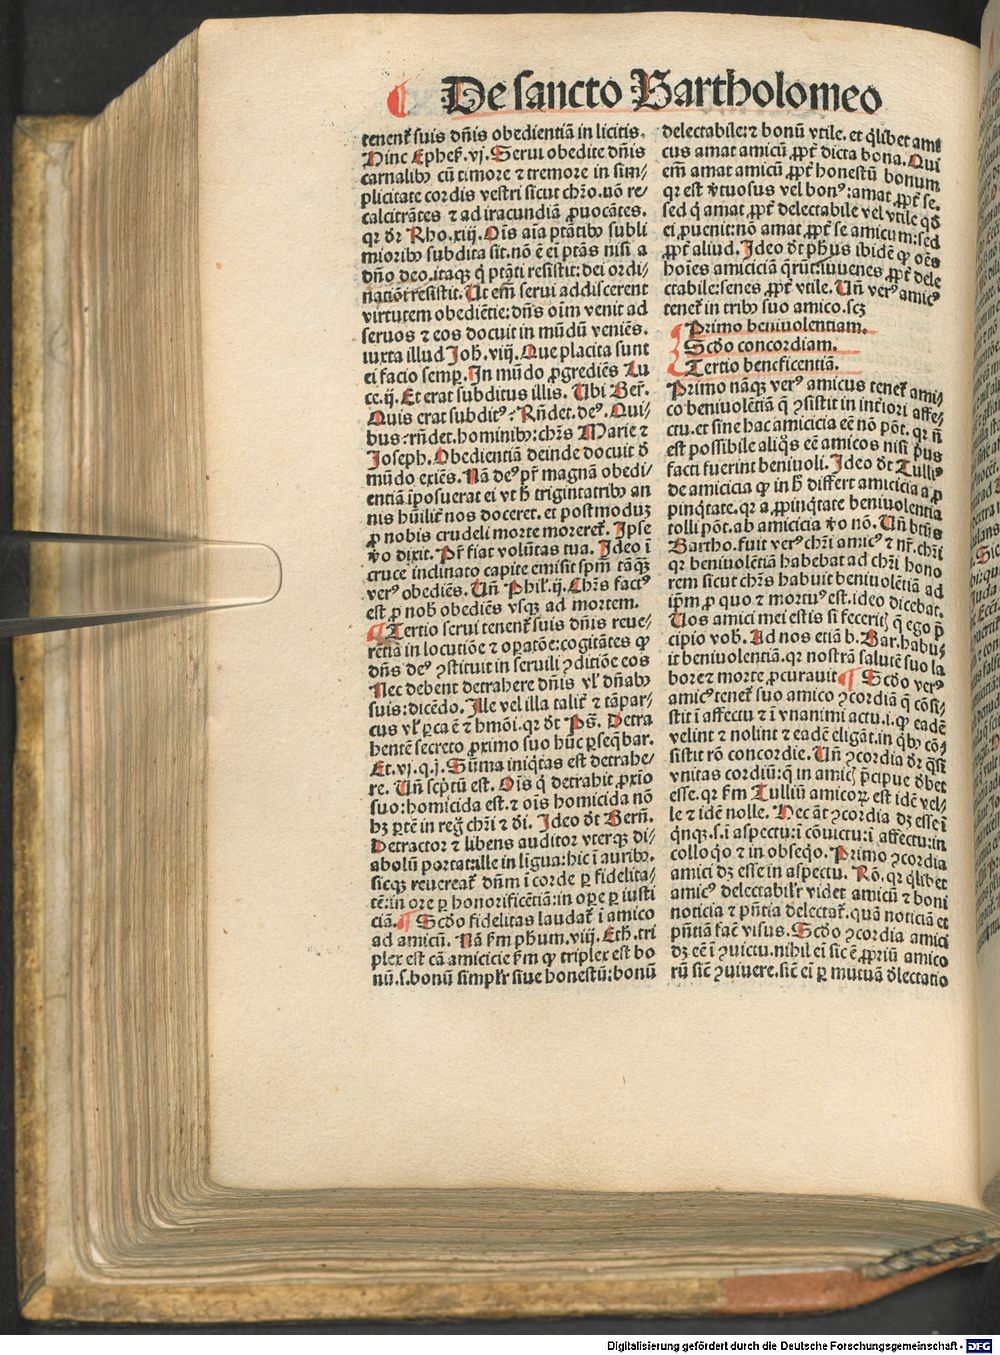 De sancto Bartholomeo
tenent᷑ suis dn̄is obedientiā in licitis.
Hinc Ephes. vj. Serui obedite dn̄is
carnalibꝰ cū timore ⁊ tremore in sim⸗
plicitate cordis vestri sicut chr̄o. nō re⸗
calcitrātes ⁊ ad iracundiā ꝓuocātes.
qꝛ dr̄ Rho. xiij. Oīs aīa ptātibꝰ subli
mioribꝰ subdita sit. nō ē eī ptās nisi a
dn̄o deo. itaqꝫ q̇ ptāti resistit: dei ordi⸗
natiōi resistit. Ut em̄ serui addiscerent
virtutem obediētie: dn̄s oīm venit ad
seruos ⁊ eos docuit in mūdū veniēs.
iuxta illud Joh̄. viij. Que placita sunt
ei facio semꝑ. In mūdo ꝓgrediēs Lu
ce. ij. Et erat subditus illis. Ubi Ber̄.
Quis erat subditꝰ: Rn̄det. deꝰ. Qui⸗
bus: rn̄det. hominibꝰ: chr̄s Marie ⁊
Joseph. Obedientiā deinde docuit ð
mūdo exiēs. Nā deꝰ pr̄ magnā obedi⸗
entiā īposuerat ei vt h̄ trigintatribꝰ an
nis hūilit᷑ nos doceret. et postmoduꝫ
ꝓ nobis crudeli morte moreret᷑. Ipse
ꝟo dixit. Pr̄ fiat volūtas tua. Ideo ī
cruce inclinato capite emisit spm̄ tāqꝫ
verꝰ obediēs. Un̄ Phil. ij. Chr̄s factꝰ
est ꝓ nob̄ obediēs vsqꝫ ad mortem.
Tertio serui tenent᷑ suis dn̄is reue⸗
rētiā in locutiōe ⁊ oꝑatōe: cogitātes ꝙ
dn̄s deꝰ ꝯstituit in seruili ꝯditiōe eos
Nec debent detrahere dn̄is vl̓ dn̄abꝰ
suis: dicēdo. Ille vel illa talit᷑ ⁊ tāpar⸗
cus vl̓ ꝑca ē ⁊ hmōi. qꝛ dt̄ Ps̄. Detra
hentē secreto ꝓximo suo hūc ꝑseq̄bar.
Et. vj. q. j. Sūma iniq̇tas est detrahe⸗
re. Un̄ scptū est. Oīs q̇ detrahit ꝓxīo
suo: homicida est. ⁊ oīs homicida nō
hꝫ ꝑtē in regꝫ chr̄i ⁊ ði. Ideo dt̄ Bern̄.
Detractor ⁊ libens auditor vterqꝫ di⸗
abolū portat: ille in līgua: hic ī auribꝰ.
sicqꝫ reuereat᷑ dn̄m ī corde ꝑ fidelita⸗
tē: in ore ꝑ honorificētiā: in oꝑe ꝑ iusti
ciā. Scd̄o fidelitas laudat᷑ ī amico
ad amicū. Nā fm̄ phum. viij. Eth. tri
plex est cā amicicie fm̄ ꝙ triplex est bo
nū. s. bonū simplr̄ siue honestū: bonū
delectabile: ⁊ bonū vtile. et q̇libet ami
cus amat amicū ꝓpt᷑ dicta bona. Qui
em̄ amat amicū ꝓpt᷑ honestū bonum
qꝛ est ꝟtuosus vel bonꝰ: amat ꝓpt᷑ se.
sed q̇ amat ꝓpt᷑ delectabile vel vtile qð
ei ꝓuenit: nō amat ꝓpt᷑ se amicum: sed
ꝓpt᷑ aliud. Ideo dt̄ ph̄us ibidē ꝙ oēs
hoīes amiciciā q̄rūt: iuuenes ꝓpt᷑ dele
ctabile: senes ꝓpt᷑ vtile. Un̄ verꝰ amicꝰ
tenet᷑ in tribꝰ suo amico. scꝫ
Primo beniuolentiam.
Scd̄o concordiam.
Tertio beneficentiā.
Primo nāqꝫ verꝰ amicus tenet᷑ ami⸗
co beniuolētiā q̄ ꝯsistit in int̓iori affe⸗
ctu. et sine hac amicicia eē nō pōt. qꝛ n̄
est possibile aliq̄s eē amicos nisi pꝰus
facti fuerint beniuoli. Ideo dt̄ Tulliꝰ
de amicicia ꝙ in h̄ differt amicicia a ꝓ
pinq̇tate. qꝛ a ꝓpinq̇tate beniuolentia
tolli pōt. ab amicicia ꝟo nō. Un̄ bt̄us
Bartho. fuit verꝰ chr̄i amicꝰ ⁊ nr̄. chr̄i
qꝛ beniuolentiā habebat ad chr̄i hono
rem sicut chr̄s habuit beniuolētiā ad
ip̄m ꝓ quo ⁊ mortuꝰ est. ideo dicebat.
Uos amici mei estis si feceritꝭ q̄ ego p̄
cipio vob̄. Ad nos etiā b. Bar. habu⸗
it beniuolentiā. qꝛ nostrā salutē suo la
bore ⁊ morte ꝓcurauit Scd̄o verꝰ
amicꝰ tenet᷑ suo amico ꝯcordiā q̄ cōsi⸗
stit ī affectu ⁊ ī vnanimi actu. i. ꝙ eadē
velint ⁊ nolint ⁊ eadē eligāt. in q̇bꝰ cō⸗
sistit rō concordie. Un̄ ꝯcordia dr̄ q̄si
vnitas cordiū: q̄ in amicꝭ p̄cipue ðbet
esse. qꝛ fm̄ Tulliū amicoꝝ est idē vel⸗
le ⁊ idē nolle. Hec āt ꝯcordia dꝫ esse ī
q̇nqꝫ. s. ī aspectu: ī cōuictu: ī affectu: in
colloq̇o ⁊ in obseq̇o. Primo ꝯcordia
amici dꝫ esse in aspectu. Rō. qꝛ q̇libet
amicꝰ delectabilr̄ videt amicū ⁊ boni
noticia ⁊ pn̄tia delectat᷑. quā noticiā et
pn̄tiā facē visus. Scd̄o ꝯcordia amici
dꝫ eē ī ꝯuictu. nihil ei sic ē ꝓpriū amico
rū sic̄ ꝯuiuere. sic̄ ei ꝑ mutuā ðlectatio
Digitalisierung gefördert durch die Deutsche Forschungsgemeinschaft - DFG